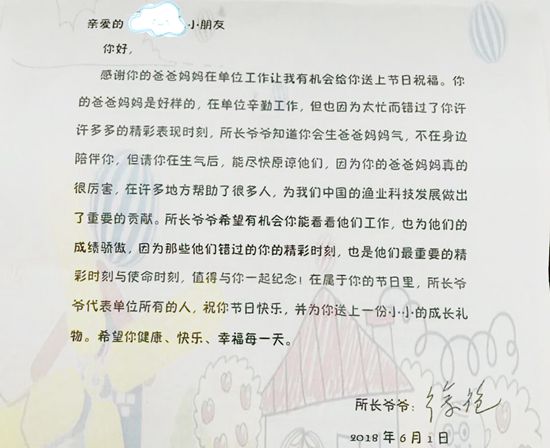 亲爱的 小朋友
你好，
感谢你的爸爸妈妈在单位工作让我有机会给你送上节日祝福。你
的爸爸妈妈是好样的，在单位辛勤工作，但也因为太忙而错过了你许
许多多的精彩表现时刻，所长爷爷知道你会生爸爸妈妈气，不在身边
陪伴你，但请你在生气后，能尽快原谅他们，因为你的爸爸妈妈真的
很厉害，在许多地方帮助了很多人，为我们中国的渔业科技发展做出
了重要的贡献。所长爷爷希望有机会你能看看他们工作，也为他们的
成绩骄傲，因为那些他们错过的你的精彩时刻，也是他们最重要的精
彩时刻与使命时刻，值得与你一起纪念！在属于你的节日里，所长爷
爷代表单位所有的人，祝你节日快乐，并为你送上一份小小的成长礼
物。希望你健康、快乐、幸福每一天。
所长爷爷：
2018年6月1日